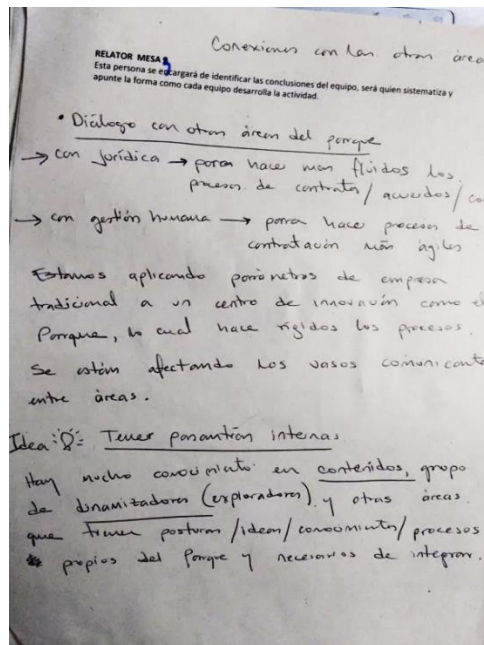 Conexiones con las otras áreas
RELATOR MESA
Esta persona se encargará de identificar las conclusiones del equipo, será quien sistematiza y
apunte la forma como cada equipo desarrolla la actividad.
• Diálogo con otras áreas del parque
→ con jurídica → para hacer mas fluídos los
procesos de contratos/acuerdos/co
→ con gestión humana → para hace procesos de
contratación más ágiles
Estamos aplicando parámetros de empresa
tradicional a un centro de innovación como el
Parque, lo cual hace rígidos los procesos.
Se están afectando los vasos comunicante
entre áreas.
Idea: Tener pasantías internas
Hay mucho conocimiento en contenidos, grupo
de dinamizadores (exploradores) y otras áreas
que tienen posturas/ideas/conocimientos/procesos
propios del Parque y necesarios de integrar.